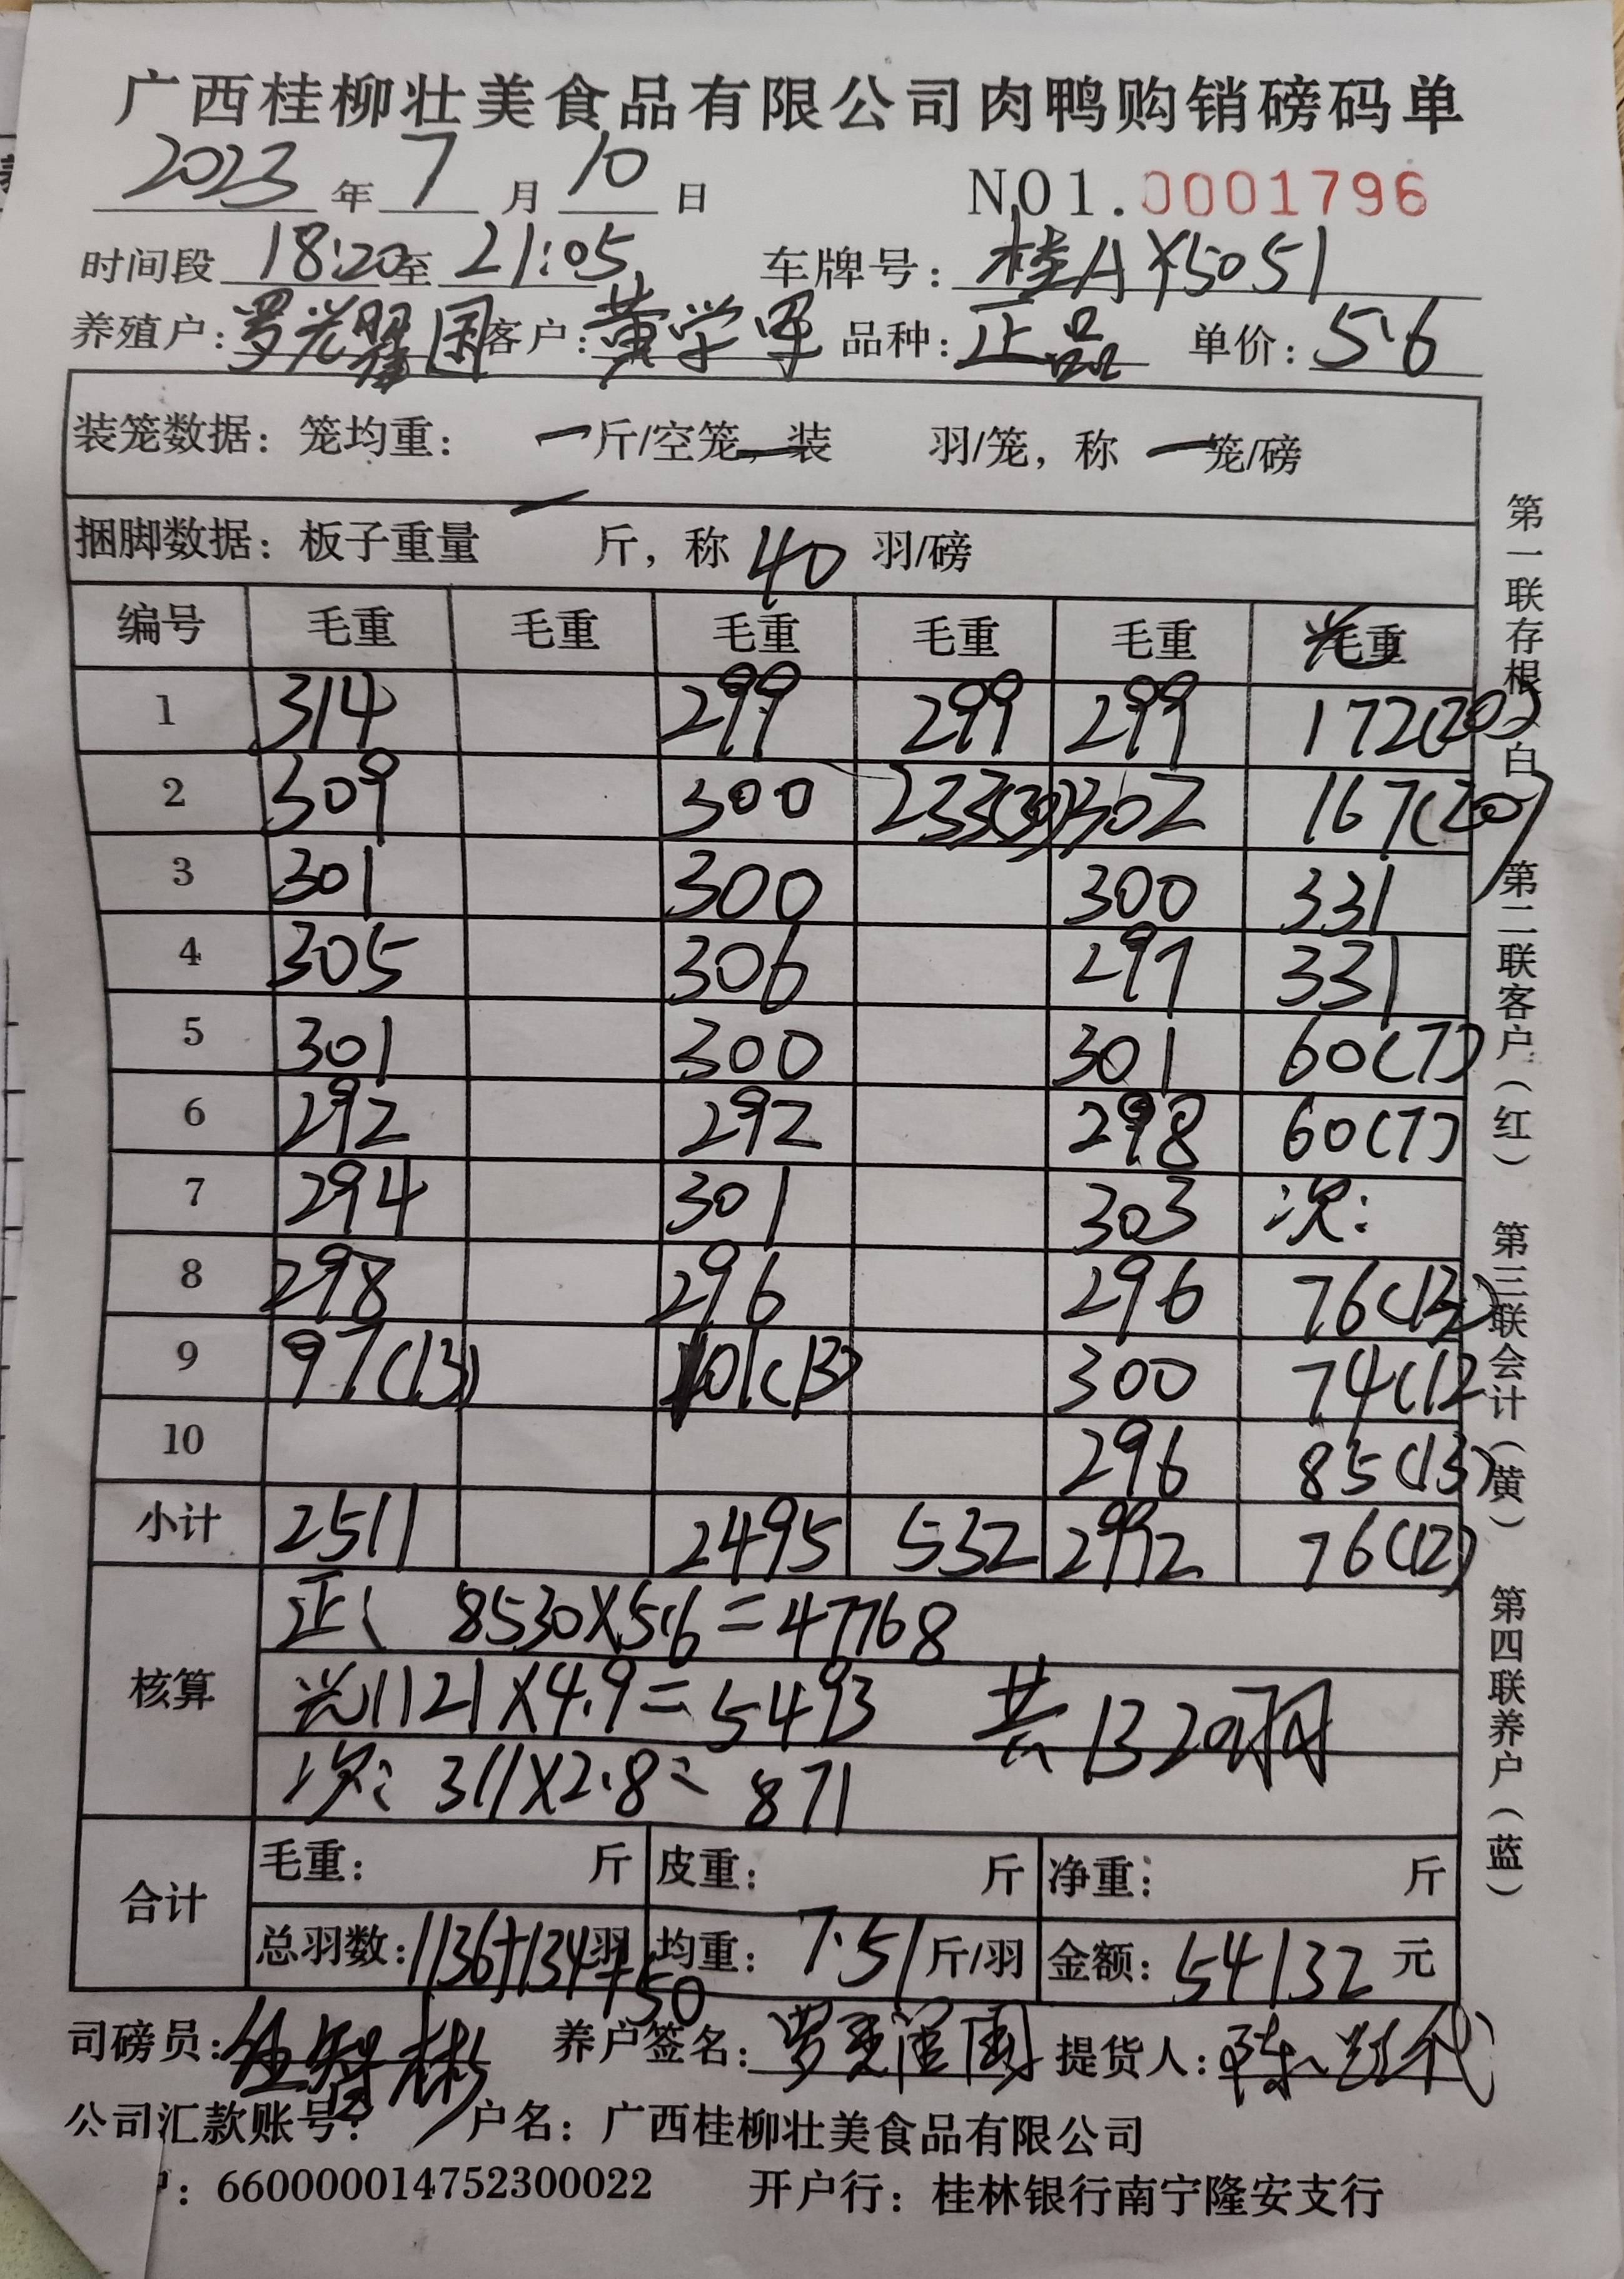 广西桂柳壮美食品有限公司肉鸭购销磅码单
2023 年 7 月 10 日 NO1.0001796
时间段 18:20 至 21:05 车牌号: 桂AY5051
养殖户: 罗光 国 客户: 黄学军 品种: 正品 单价: 5.6
装笼数据: 笼均重: 一 斤/空笼, 装 羽/笼, 称 一 笼/磅
捆脚数据: 板子重量 一 斤, 称 40 羽/磅
编号 毛重 毛重 毛重 毛重 毛重 光毛重
1 314 299 299 299 172(20)
2 309 300 233(30) 302 167(20)
3 301 300 300 331
4 305 306 297 331
5 301 300 301 60(7)
6 292 292 298 60(7)
7 294 301 303 次:
8 298 296 296 76(13)
9 97(13) 101(13) 300 74(12
10 296 85(13)
小计 2511 2495 532 2992 76(12)
核算
正: 8530×5.6=47768
光1121×4.9=5493 共1320羽
次: 311×2.8= 871
合计 毛重: 斤 皮重: 斤 净重: 斤
总羽数: 1136+134+50 羽 均重: 7.51 斤/羽 金额: 54132 元
司磅员: 彬 养户签名: 罗 国 提货人: 陈 代
公司汇款账号: 户名: 广西桂柳壮美食品有限公司
: 660000014752300022 开户行: 桂林银行南宁隆安支行
第一联存根(白) 第二联客户(红) 第三联会计(黄) 第四联养户(蓝)